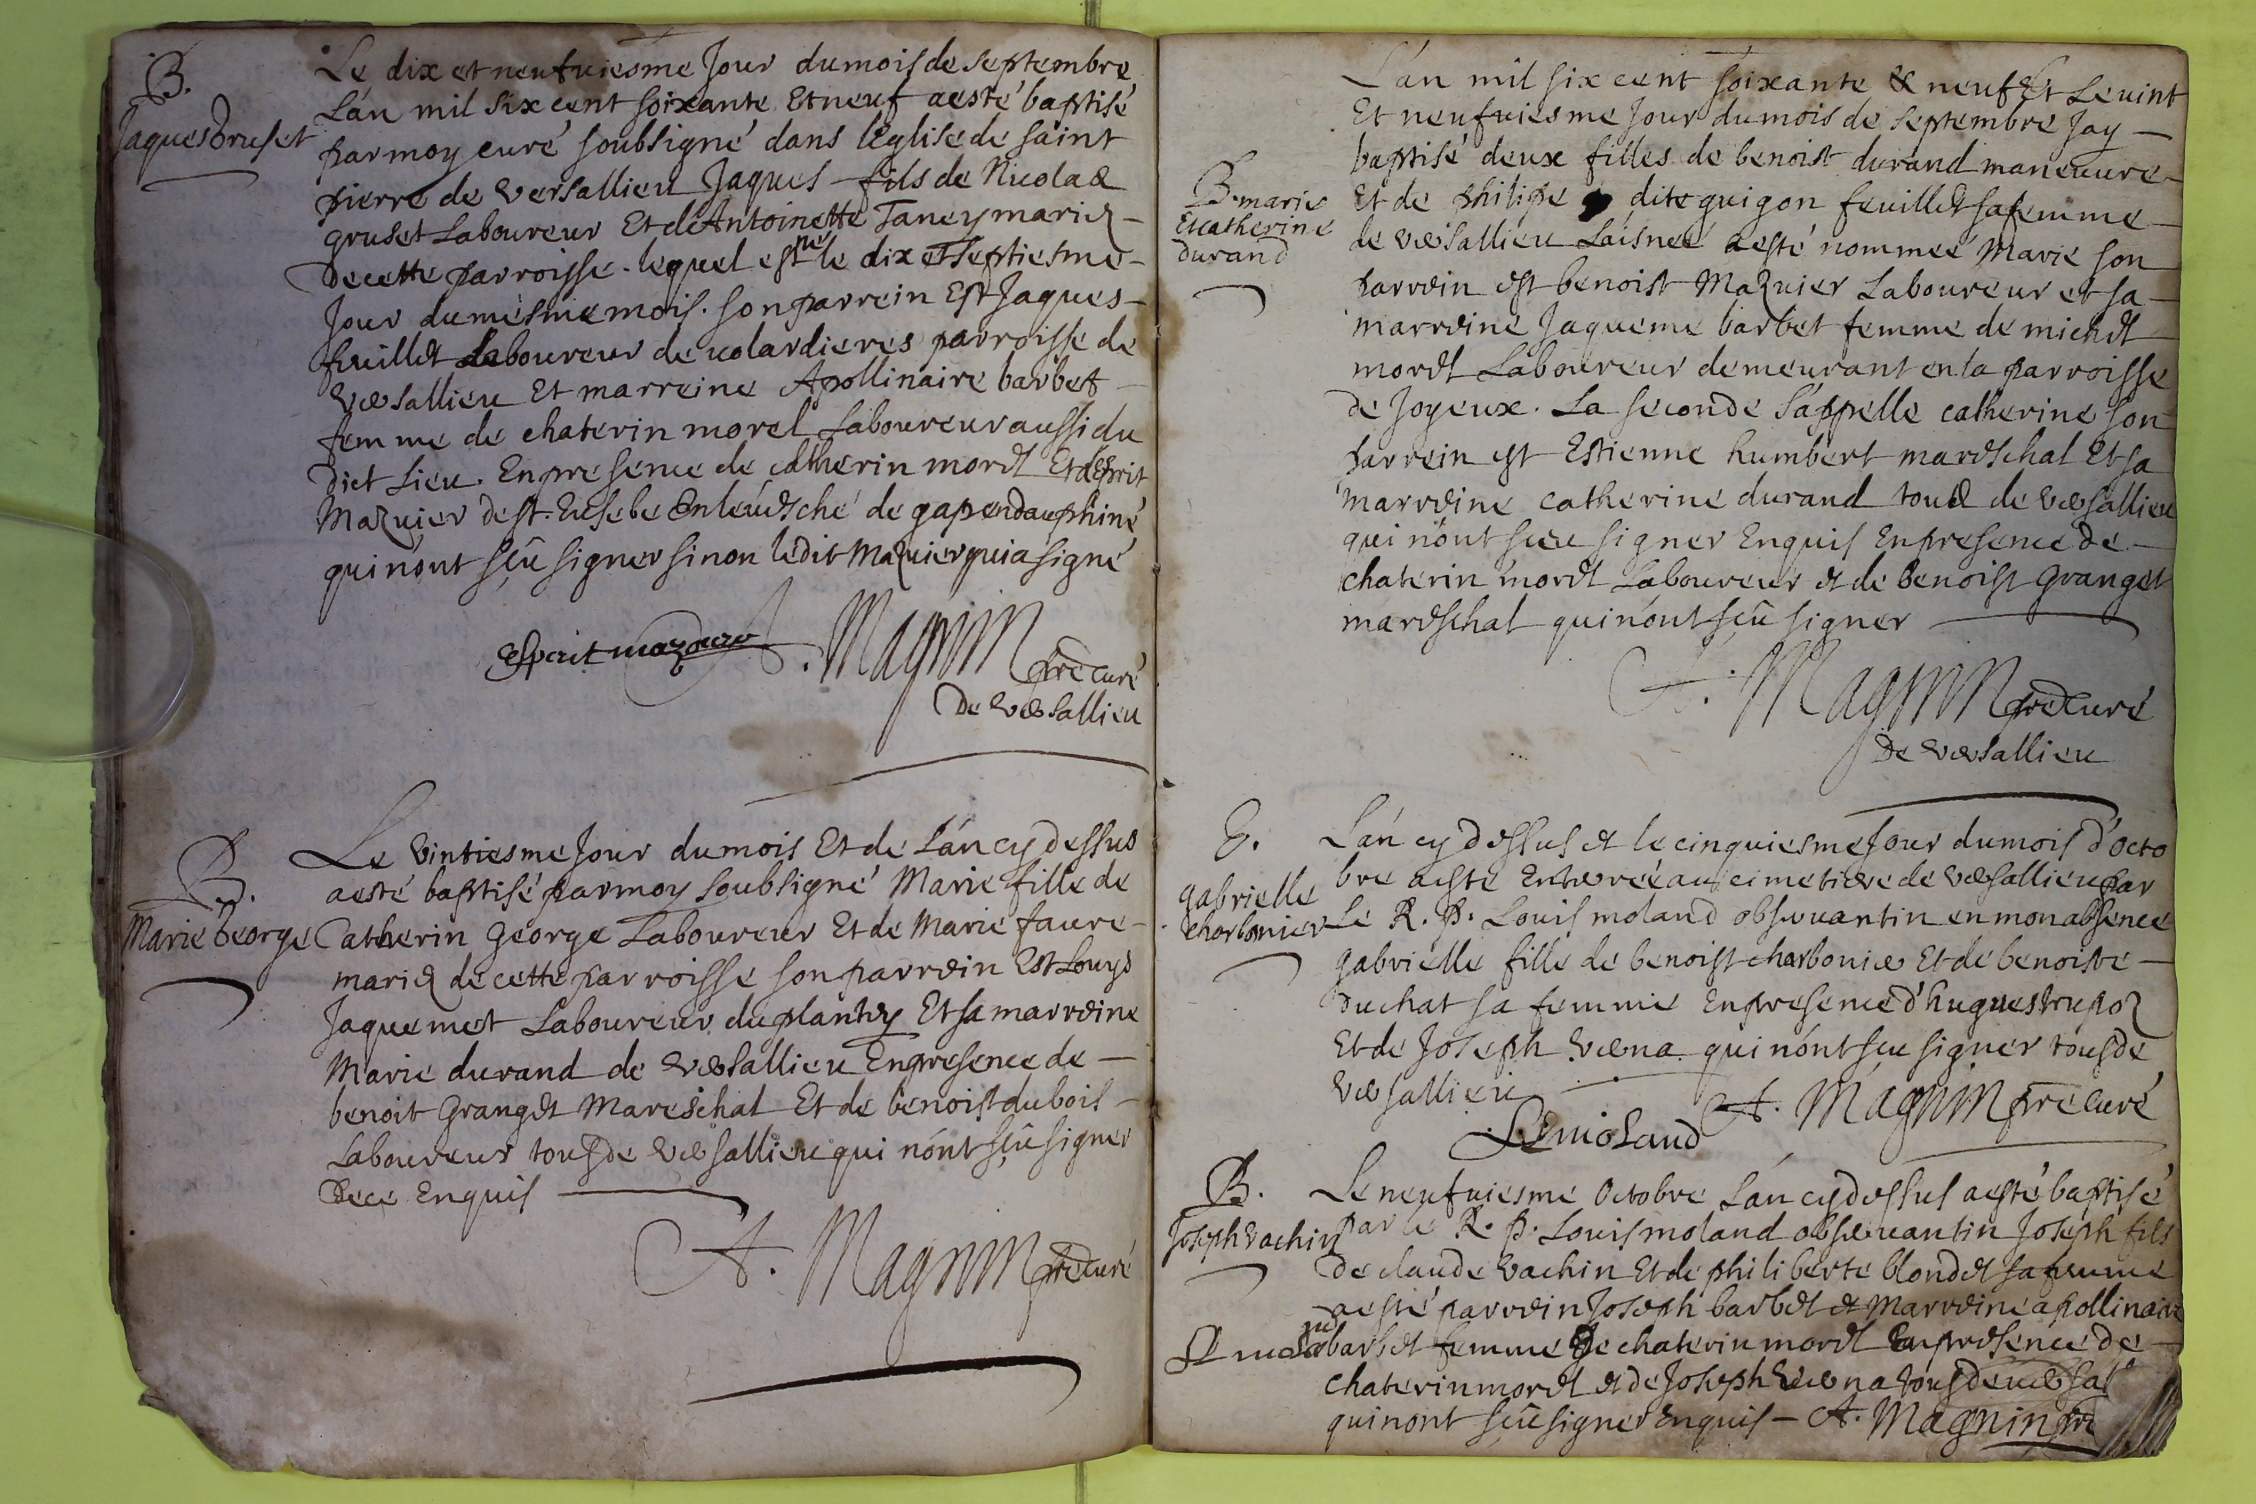 B.
Jaques Gruset
Le dix et neufviesme Jour du mois de septembre
L'an mil six cent soixante Et neuf a esté baptisé
par moy curé soubsigné dans l'Eglise de saint
pierre de versallieu Jaques fils de Nicolas
gruset Laboureur Et de Antoinette Taney mariez
de cette parroisse. lequel est né le dix et septiesme
Jour du mesme mois. son parrein Est Jaques
fueillet Laboureur de volardieres parroisse de
versallieu Et marreine Apollinaire barbet
femme de chaterin morel Laboureur aussi du
dict Lieu. En presence de catherin morel Et d'Esprit
Mazuier de st. Eusebe En l'evesché de gap en dauphiné
qui n'ont sçeu signer sinon ledit Mazuier qui a signé
Esperit mazuier A. Magnin pre curé
De versallieu
B.
Marie George
Le vintiesme Jour du mois Et de L'an cy dessus
a esté baptisé par moy soubsigné Marie fille de
Catherin George Laboureur Et de Marie faure
mariez de cette parroisse son parrein Est Louys
Jaquemet Laboureur du plantey Et sa marreine
Marie durand de versallieu En presence de
benoit Granget Mareschal Et de benoist dubois
Laboureur tous de versallieu qui n'ont sçeu signer
De ce Enquis
A. Magnin pre curé
B. marie
Et catherine
durand
L'an mil six cent soixante & neuf Et Le vint
Et neufviesme Jour du mois de septembre Jay
baptisé deux filles de benoist durand maneuvre
Et de philipe dite guigon feuillet sa femme
de versallieu Laisnee a esté nommee Marie son
parrein est benoist Mazuier Laboureur et sa
marreine Jaqueme barbet femme de michel
morel Laboureur demeurant en la parroisse
de Joyeux. La seconde s'appelle catherine son
parrein est Estienne humbert mareschal Et sa
marreine catherine durand tous de versallieu
qui n'ont sceu signer Enquis En presence de
chaterin morel Laboureur et de benoist Granget
mareschal qui n'ont sçeu signer
A. Magnin pre curé
De versallieu
E.
gabrielle
charbonier
L'an cy dessus et le cinquiesme Jour du mois d'octo
bre a esté Enterrée au cimetiere de versallieu par
Le R. P. Louis moland observantin en mon absence
gabrielle fille de benoist charbonier Et de benoiste
duchat sa femme En presence d'hugues trupoz
Et de Joseph verna qui n'ont sceu signer tous de
versallieu
L moland A. Magnin pre curé
B.
Joseph vachin
Le neufviesme Octobre L'an cy dessus a esté baptisé
par le R. P. Louis moland observantin Joseph fils
de claude vachin Et de philiberte blondel sa femme
a esté parrein Joseph barbet et Marreine apollinaire
barbet femme de chaterin morel En presence de
L moland
chaterin morel et de Joseph verna tous de versal
qui n'ont sçeu signer Enquis - A. Magnin pre